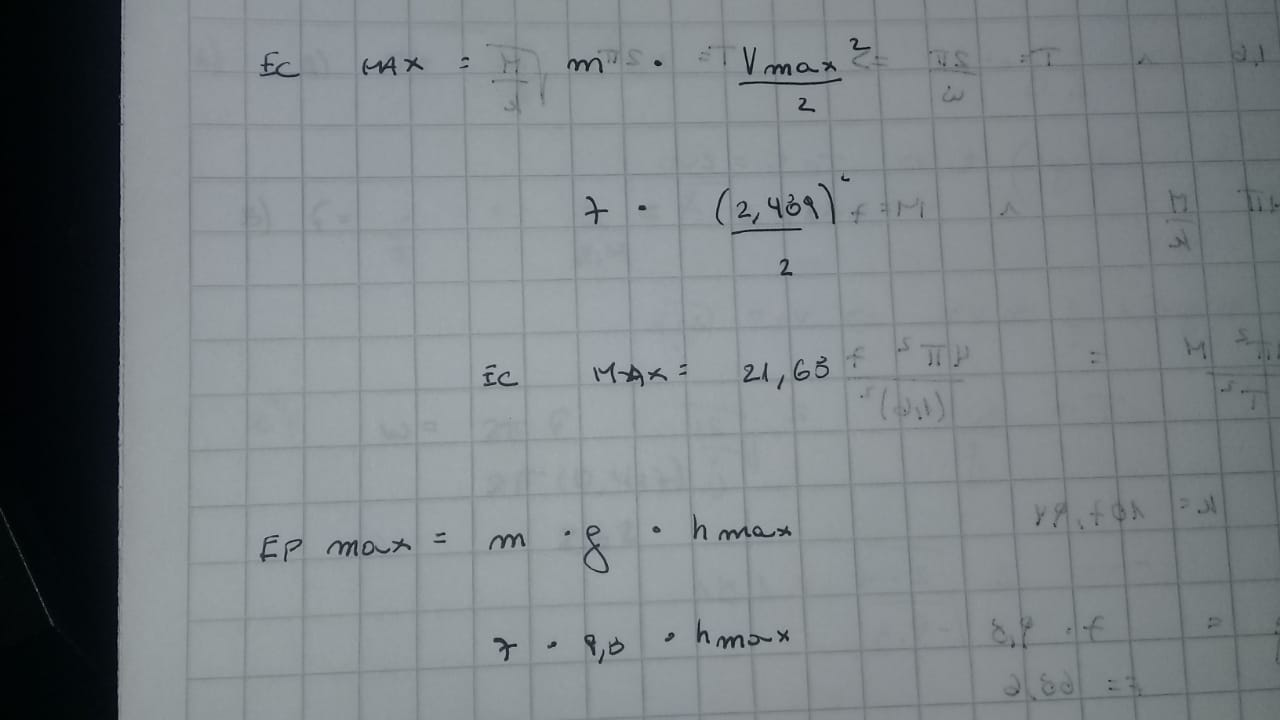 Ec MAX = m · Vmax² / 2
7 · (2,489)² / 2
Ec MAX = 21,68
EP max = m · g · hmax
7 · 9,8 · hmax